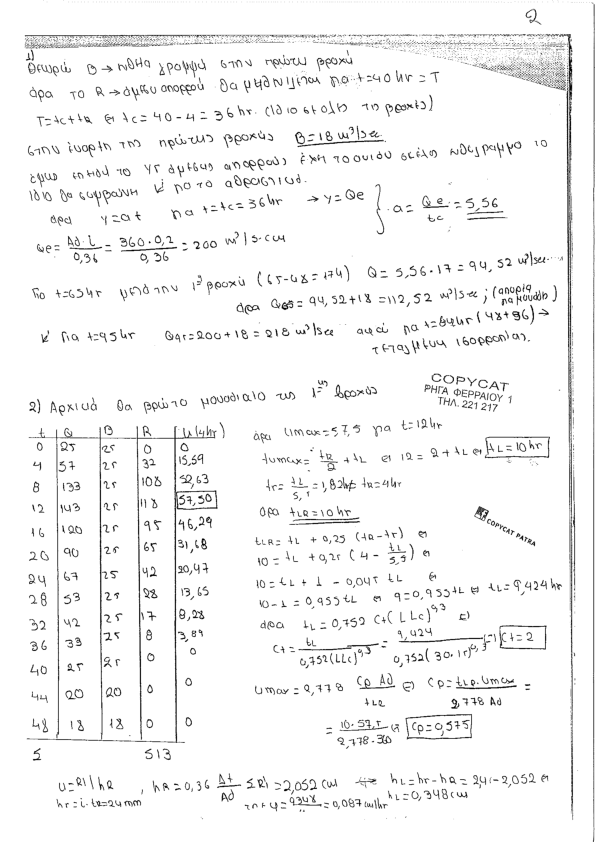 2
1)
Θεωρώ B → ευθεία γραμμή στην πρώτη βροχή
άρα το R → άμεση απορροή θα μηδενίζεται για t=40hr = T
T=tc+tR ⇔ tc = 40-4 = 36 hr. (ίδιο σε όλες τις βροχές)
στην έναρξη της πρώτης βροχής B=18 m³/sec
το
ίδιο θα συμβαίνει & για το αθροιστικό.
άρα y=at για t=tc=36hr → y=Qe } a = Qe/tc = 5,56
Qe = Ad·L/0,36 = 360·0,2/0,36 = 200 m³/s·cm
Για t=65hr μετά την 1η βροχή (65-48=17η) Q = 5,56·17 = 94,52 m³/sec
άρα Q65 = 94,52+18 = 112,52 m³/sec ; (απορία
& για t=95hr Q95=200+18 = 218 m³/sec αφού για t=84hr (48+36) →
τεταγμένη ισορροπίας.
COPYCAT
ΡΗΓΑ ΦΕΡΡΑΙΟΥ 1
ΤΗΛ. 221 217
2) Αρχικά θα βρω το μοναδιαίο της 1ης βροχής
t Q B R U(4hr)
0 25 25 0 0
4 57 25 32 15,59
8 133 25 108 52,63
12 143 25 118 57,50
16 120 25 95 46,29
20 90 25 65 31,68
24 67 25 42 20,47
28 53 25 28 13,65
32 42 25 17 8,28
36 33 25 8 3,89
40 25 25 0 0
44 20 20 0 0
48 18 18 0 0
Σ 513
άρα Umax=57,5 για t=12hr
tumax = tR/2 + tL ⇔ 12 = 2 + tL ⇔ tL=10hr
tr = tL/5,5 = 1,82hr ≠ tR=4hr
άρα tLR=10hr
COPYCAT PATRA
tLR = tL + 0,25 (tR-tr) ⇔
10 = tL + 0,25 (4 - tL/5,5) ⇔
10 = tL + 1 - 0,045 tL ⇔
10-1 = 0,955 tL ⇔ 9=0,955tL ⇔ tL=9,424hr
άρα tL=0,752 Ct(LLc)^0,3 ⇔
Ct = tL/0,752(LLc)^0,3 = 9,424/0,752(30·15)^0,3 ⇔ Ct=2
Umax = 2,778 Cp Ad/tLR ⇔ Cp = tLR·Umax/2,778 Ad =
= 10·57,5/2,778·360 ⇔ Cp=0,575
U=Ri/hR , hR = 0,36 Δt/Ad ΣRi = 2,052 cm ⇔ hL=hr-hR = 2,4-2,052 ⇔
hr=i·tR=24mm = 0,087cm/hr hL=0,348cm